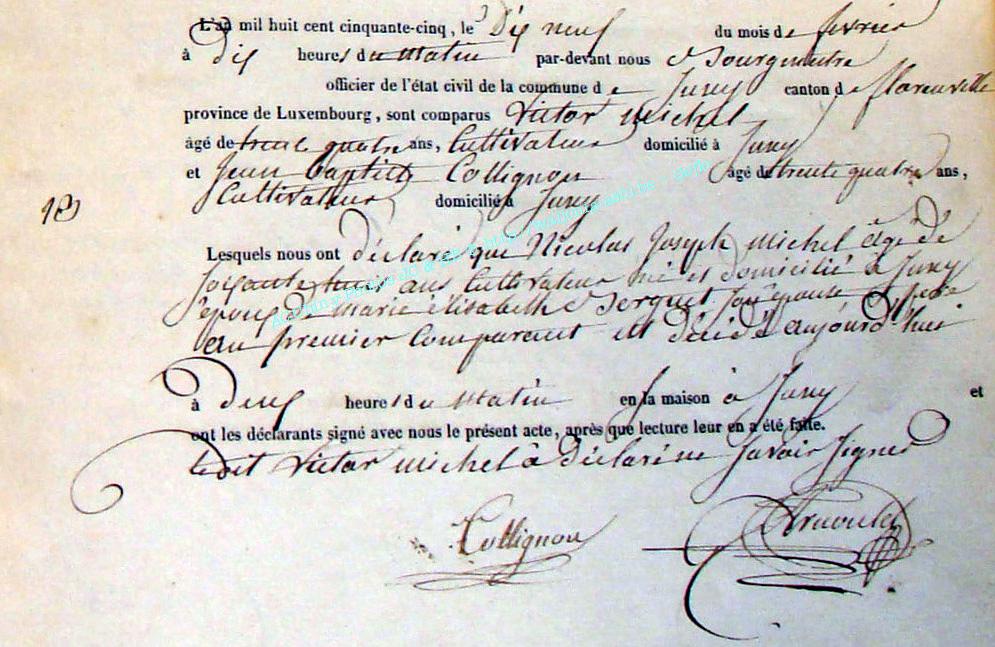 L'an mil huit cent cinquante-cinq, le Dix neuf du mois de fevrier
à Dix heures du matin par-devant nous
officier de l'état civil de la commune de canton de florenville
province de Luxembourg, sont comparus Victor Michel
âgé de trente quatre ans, Cultivateur domicilié à
et Jean Baptiste Collignon âgé de trente quatre ans,
Cultivateur domicilié à
18
Lesquels nous ont déclaré que Nicolas Joseph Michel âgé de
soixante trois ans cultivateur né et domicilié à
époux de marie élisabeth son épouse et père
au premier comparant est décédé aujourd'hui
à Deux heures du matin en sa maison à et
ont les déclarants signé avec nous le présent acte, après que lecture leur en a été faite.
ledit Victor Michel à déclaré ne savoir signer
Collignon